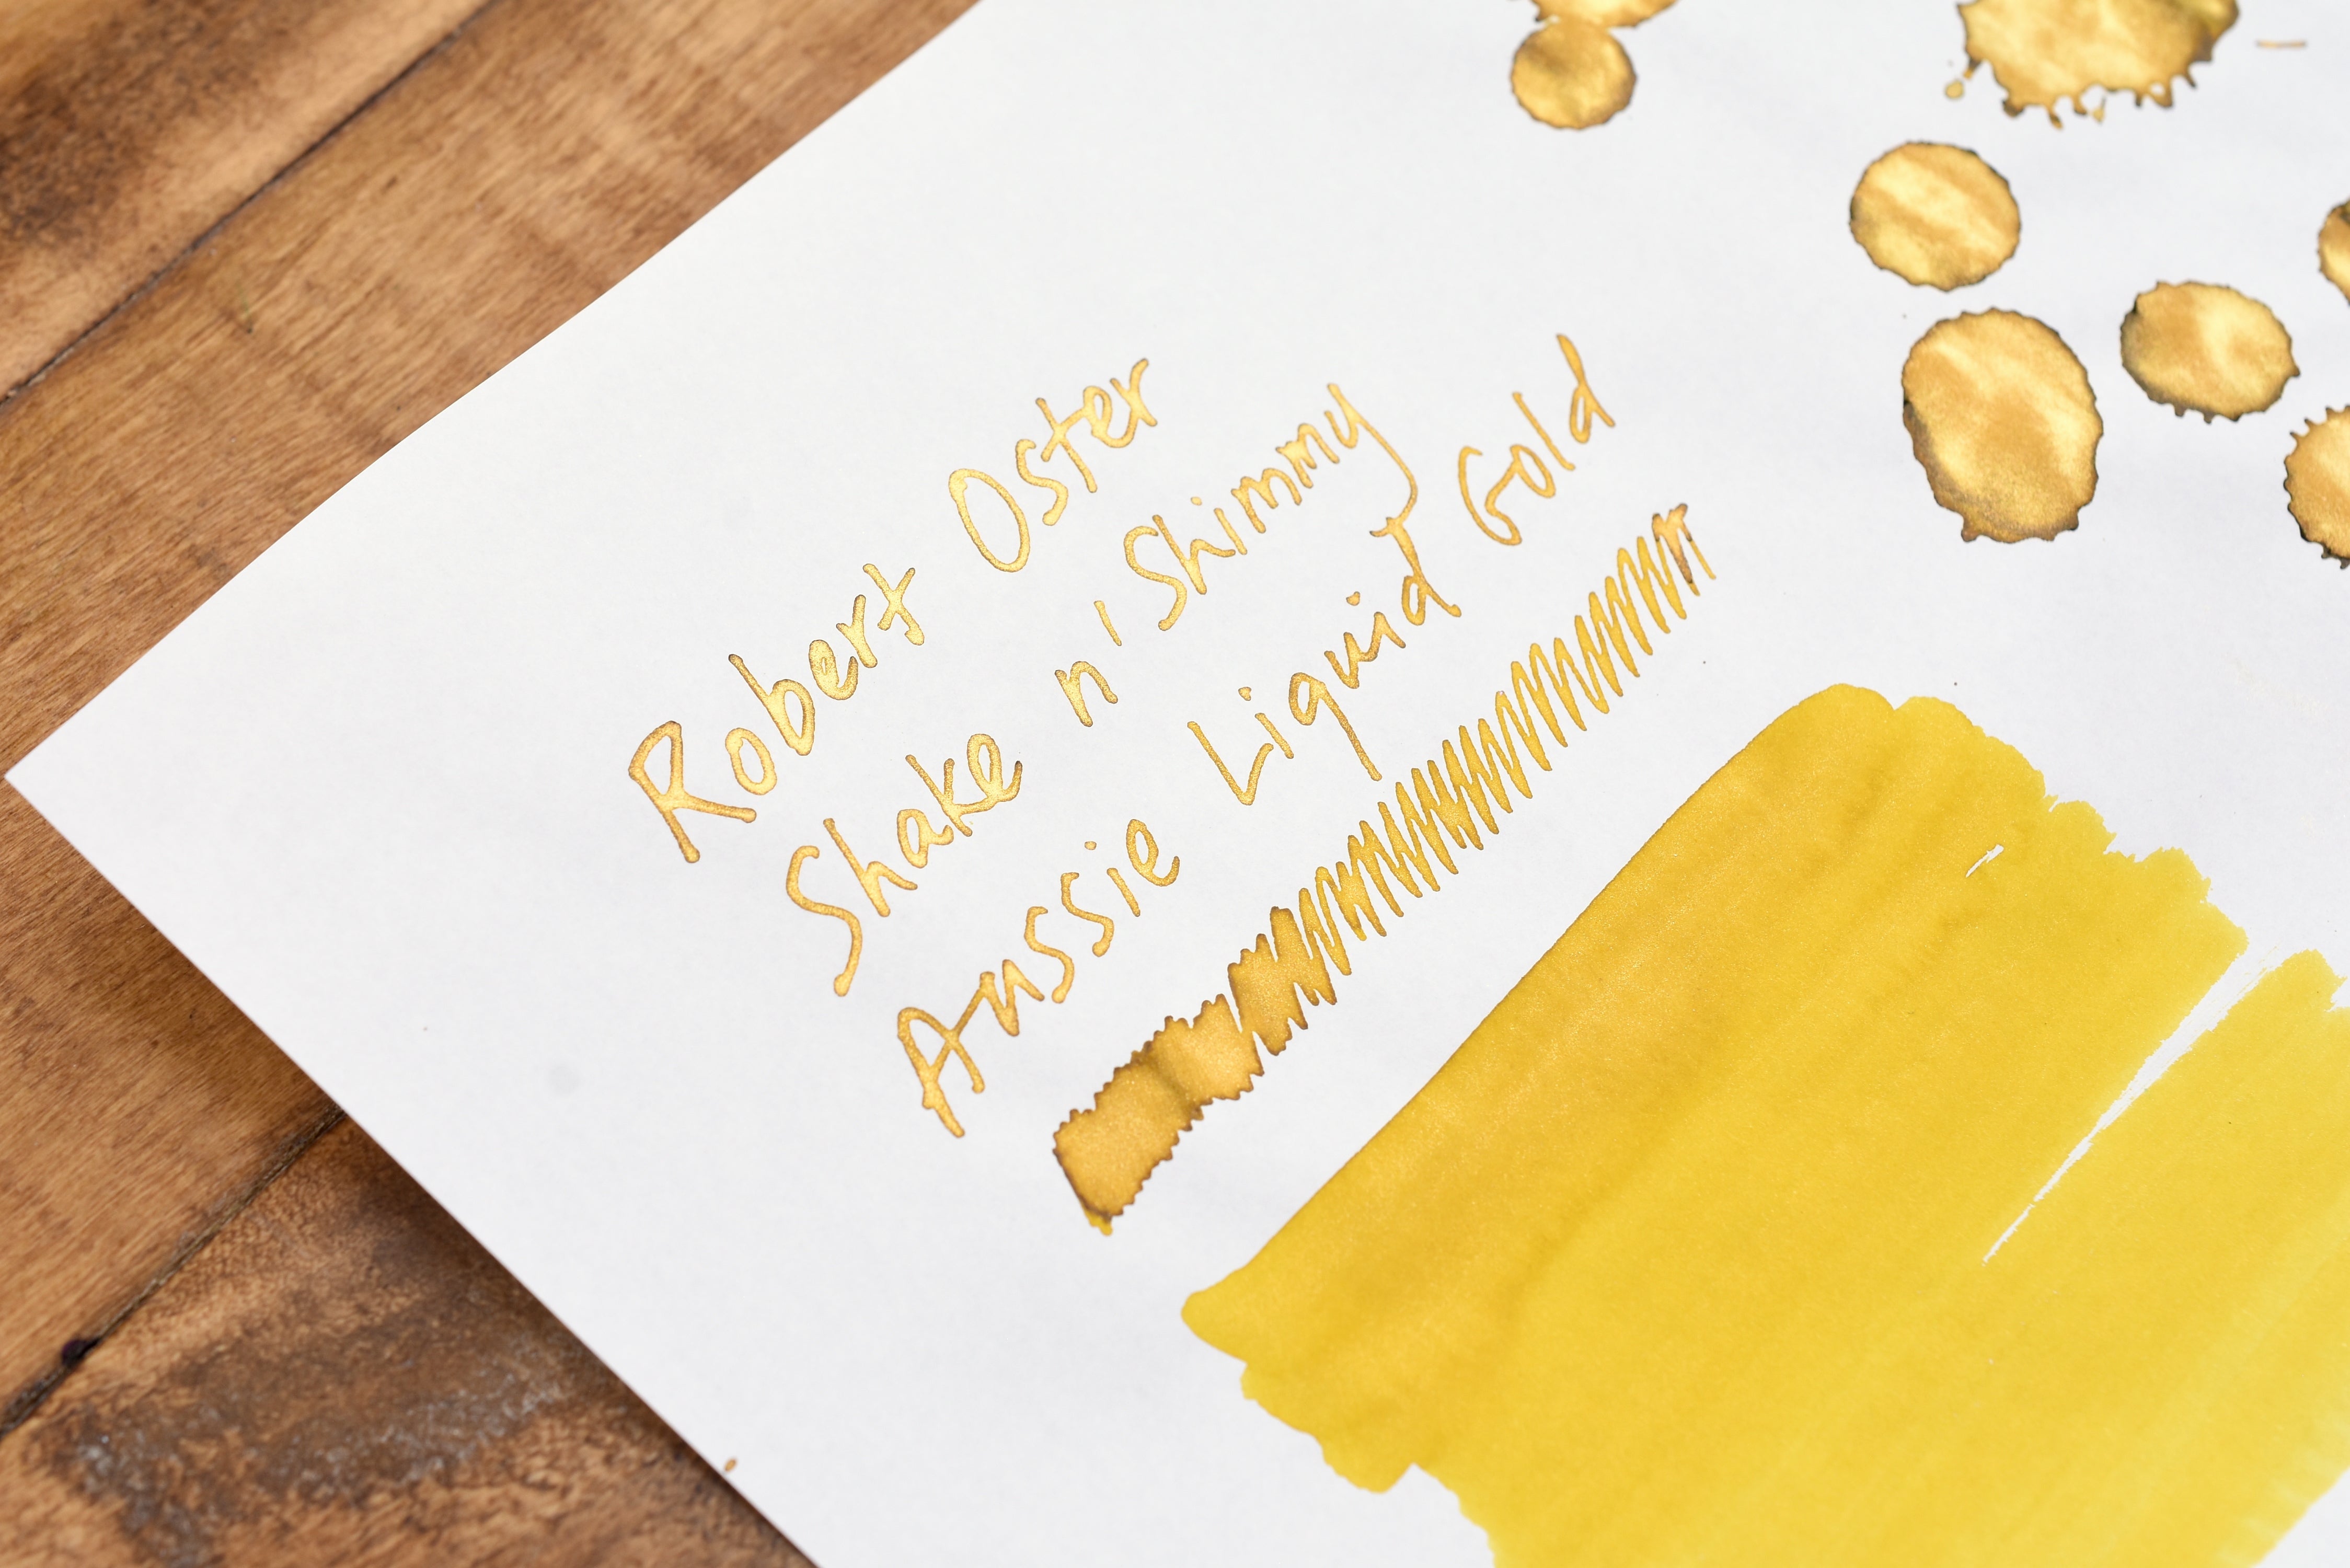 Robert Oster
Shake n' Shimmy
Aussie Liquid Gold